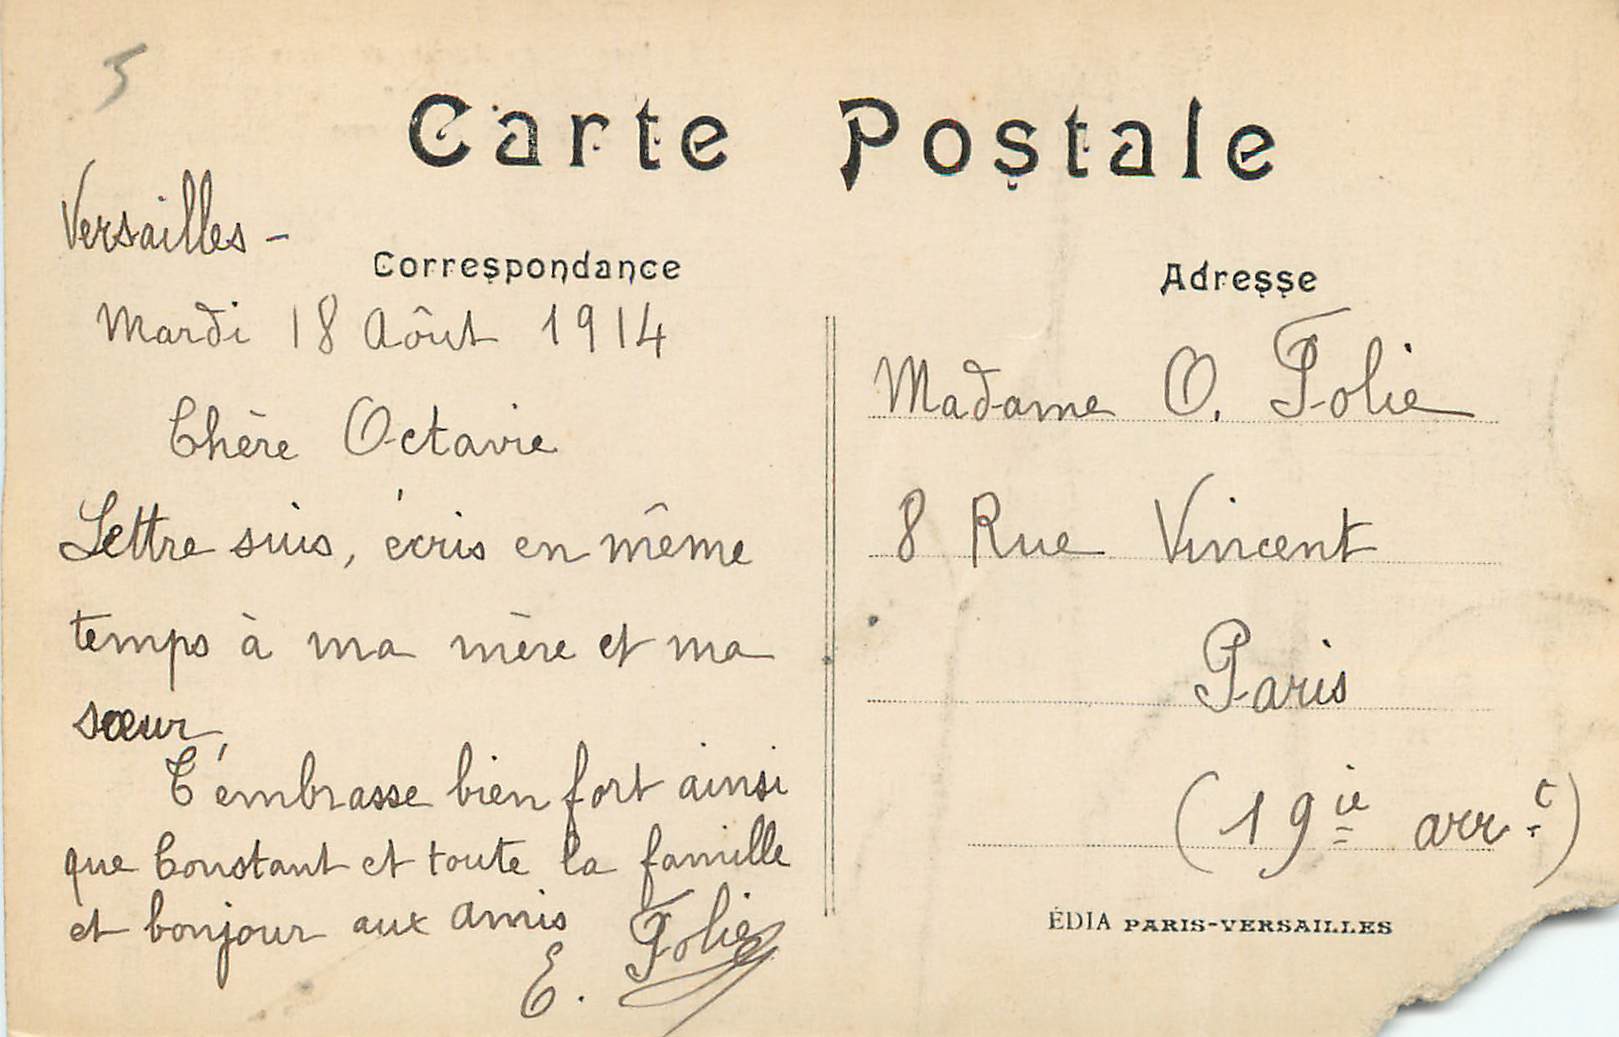 5
Carte Postale
Versailles -
Correspondance
Mardi 18 Aôut 1914
Chère Octavie
Lettre suis, écris en même
temps à ma mère et ma
sœur,
T'embrasse bien fort ainsi
que Constant et toute la famille
et bonjour aux amis
E. Folie
Adresse
Madame O. Folie
8 Rue Vincent
Paris
(19ie arrt)
ÉDIA PARIS-VERSAILLES